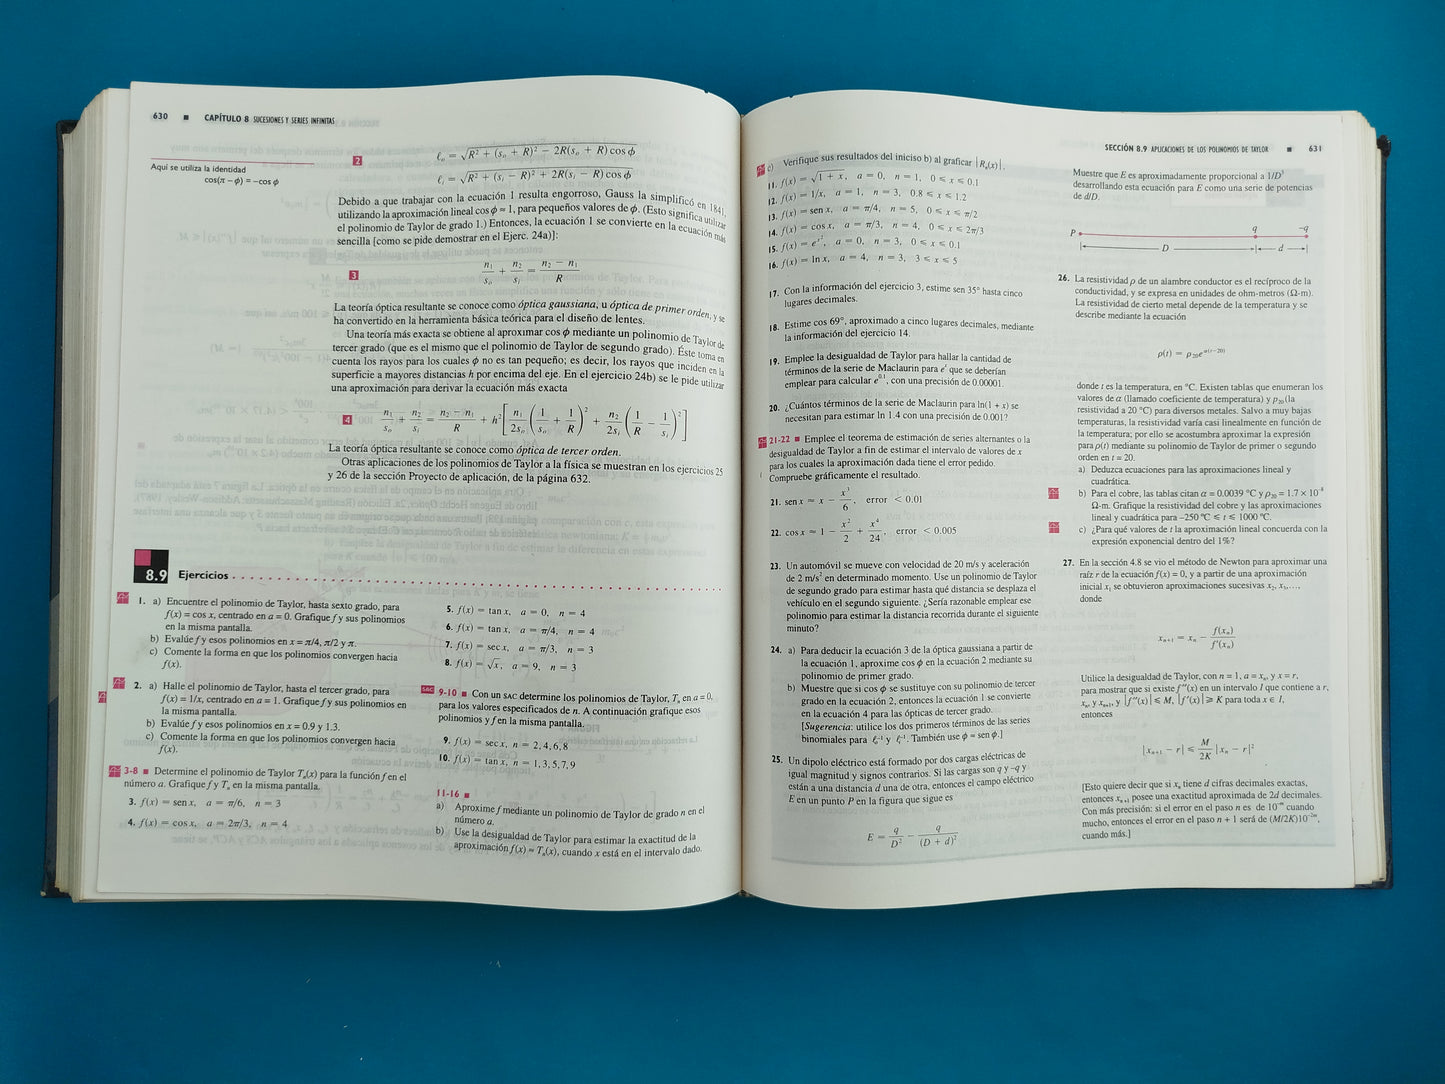 630 ■ CAPÍTULO 8 SUCESIONES Y SERIES INFINITAS
Aquí se utiliza la identidad
cos(π − φ) = −cos φ
2 ℓₒ = √(R² + (sₒ + R)² − 2R(sₒ + R) cos φ)
ℓᵢ = √(R² + (sᵢ − R)² + 2R(sᵢ − R) cos φ)
Debido a que trabajar con la ecuación 1 resulta engorroso, Gauss la simplificó en 1841,
utilizando la aproximación lineal cos φ ≈ 1, para pequeños valores de φ. (Esto significa utilizar
el polinomio de Taylor de grado 1.) Entonces, la ecuación 1 se convierte en la ecuación más
sencilla [como se pide demostrar en el Ejerc. 24a)]:
3 n₁/sₒ + n₂/sᵢ = (n₂ − n₁)/R
La teoría óptica resultante se conoce como óptica gaussiana, u óptica de primer orden, y se
ha convertido en la herramienta básica teórica para el diseño de lentes.
Una teoría más exacta se obtiene al aproximar cos φ mediante un polinomio de Taylor de
tercer grado (que es el mismo que el polinomio de Taylor de segundo grado). Éste toma en
cuenta los rayos para los cuales φ no es tan pequeño; es decir, los rayos que inciden en la
superficie a mayores distancias h por encima del eje. En el ejercicio 24b) se le pide utilizar
una aproximación para derivar la ecuación más exacta
4 n₁/sₒ + n₂/sᵢ = (n₂ − n₁)/R + h²[n₁/2sₒ (1/sₒ + 1/R)² + n₂/2sᵢ (1/R − 1/sᵢ)²]
La teoría óptica resultante se conoce como óptica de tercer orden.
Otras aplicaciones de los polinomios de Taylor a la física se muestran en los ejercicios 25
y 26 de la sección Proyecto de aplicación, de la página 632.
8.9 Ejercicios
1. a) Encuentre el polinomio de Taylor, hasta sexto grado, para
f(x) = cos x, centrado en a = 0. Grafique f y sus polinomios
en la misma pantalla.
b) Evalúe f y esos polinomios en x = π/4, π/2 y π.
c) Comente la forma en que los polinomios convergen hacia
f(x).
2. a) Halle el polinomio de Taylor, hasta el tercer grado, para
f(x) = 1/x, centrado en a = 1. Grafique f y sus polinomios en
la misma pantalla.
b) Evalúe f y esos polinomios en x = 0.9 y 1.3.
c) Comente la forma en que los polinomios convergen hacia
f(x).
3-8 ■ Determine el polinomio de Taylor Tₙ(x) para la función f en el
número a. Grafique f y Tₙ en la misma pantalla.
3. f(x) = sen x, a = π/6, n = 3
4. f(x) = cos x, a = 2π/3, n = 4
5. f(x) = tan x, a = 0, n = 4
6. f(x) = tan x, a = π/4, n = 4
7. f(x) = sec x, a = π/3, n = 3
8. f(x) = √x, a = 9, n = 3
SAC 9-10 ■ Con un SAC determine los polinomios de Taylor, Tₙ en a = 0,
para los valores especificados de n. A continuación grafique esos
polinomios y f en la misma pantalla.
9. f(x) = sec x, n = 2, 4, 6, 8
10. f(x) = tan x, n = 1, 3, 5, 7, 9
11-16 ■
a) Aproxime f mediante un polinomio de Taylor de grado n en el
número a.
b) Use la desigualdad de Taylor para estimar la exactitud de la
aproximación f(x) ≈ Tₙ(x), cuando x está en el intervalo dado.
SECCIÓN 8.9 APLICACIONES DE LOS POLINOMIOS DE TAYLOR ■ 631
c) Verifique sus resultados del iniciso b) al graficar |Rₙ(x)|.
11. f(x) = √(1 + x), a = 0, n = 1, 0 ⩽ x ⩽ 0.1
12. f(x) = 1/x, a = 1, n = 3, 0.8 ⩽ x ⩽ 1.2
13. f(x) = sen x, a = π/4, n = 5, 0 ⩽ x ⩽ π/2
14. f(x) = cos x, a = π/3, n = 4, 0 ⩽ x ⩽ 2π/3
15. f(x) = e^(x²), a = 0, n = 3, 0 ⩽ x ⩽ 0.1
16. f(x) = ln x, a = 4, n = 3, 3 ⩽ x ⩽ 5
17. Con la información del ejercicio 3, estime sen 35° hasta cinco
lugares decimales.
18. Estime cos 69°, aproximado a cinco lugares decimales, mediante
la información del ejercicio 14.
19. Emplee la desigualdad de Taylor para hallar la cantidad de
términos de la serie de Maclaurin para eˣ que se deberían
emplear para calcular e^0.1, con una precisión de 0.00001.
20. ¿Cuántos términos de la serie de Maclaurin para ln(1 + x) se
necesitan para estimar ln 1.4 con una precisión de 0.001?
21-22 ■ Emplee el teorema de estimación de series alternantes o la
desigualdad de Taylor a fin de estimar el intervalo de valores de x
para los cuales la aproximación dada tiene el error pedido.
Compruebe gráficamente el resultado.
21. sen x ≈ x − x³/6, error < 0.01
22. cos x ≈ 1 − x²/2 + x⁴/24, error < 0.005
23. Un automóvil se mueve con velocidad de 20 m/s y aceleración
de 2 m/s² en determinado momento. Use un polinomio de Taylor
de segundo grado para estimar hasta qué distancia se desplaza el
vehículo en el segundo siguiente. ¿Sería razonable emplear ese
polinomio para estimar la distancia recorrida durante el siguiente
minuto?
24. a) Para deducir la ecuación 3 de la óptica gaussiana a partir de
la ecuación 1, aproxime cos φ en la ecuación 2 mediante su
polinomio de primer grado.
b) Muestre que si cos φ se sustituye con su polinomio de tercer
grado en la ecuación 2, entonces la ecuación 1 se convierte
en la ecuación 4 para las ópticas de tercer grado.
[Sugerencia: utilice los dos primeros términos de las series
binomiales para ℓₒ⁻¹ y ℓᵢ⁻¹. También use φ ≈ sen φ.]
25. Un dipolo eléctrico está formado por dos cargas eléctricas de
igual magnitud y signos contrarios. Si las cargas son q y −q y
están a una distancia d una de otra, entonces el campo eléctrico
E en un punto P en la figura que sigue es
E = q/D² − q/(D + d)²
Muestre que E es aproximadamente proporcional a 1/D³
desarrollando esta ecuación para E como una serie de potencias
de d/D.
P q −q
D d
26. La resistividad ρ de un alambre conductor es el recíproco de la
conductividad, y se expresa en unidades de ohm-metros (Ω-m).
La resistividad de cierto metal depende de la temperatura y se
describe mediante la ecuación
ρ(t) = ρ₂₀e^(α(t−20))
donde t es la temperatura, en °C. Existen tablas que enumeran los
valores de α (llamado coeficiente de temperatura) y ρ₂₀ (la
resistividad a 20 °C) para diversos metales. Salvo a muy bajas
temperaturas, la resistividad varía casi linealmente en función de
la temperatura; por ello se acostumbra aproximar la expresión
para ρ(t) mediante su polinomio de Taylor de primer o segundo
orden en t = 20.
a) Deduzca ecuaciones para las aproximaciones lineal y
cuadrática.
b) Para el cobre, las tablas citan α = 0.0039 °C y ρ₂₀ = 1.7 × 10⁻⁸
Ω-m. Grafique la resistividad del cobre y las aproximaciones
lineal y cuadrática para −250 °C ⩽ t ⩽ 1000 °C.
c) ¿Para qué valores de t la aproximación lineal concuerda con la
expresión exponencial dentro del 1%?
27. En la sección 4.8 se vio el método de Newton para aproximar una
raíz r de la ecuación f(x) = 0, y a partir de una aproximación
inicial x₁ se obtuvieron aproximaciones sucesivas x₂, x₃, ...,
donde
xₙ₊₁ = xₙ − f(xₙ)/f′(xₙ)
Utilice la desigualdad de Taylor, con n = 1, a = xₙ, y x = r,
para mostrar que si existe f″(x) en un intervalo I que contiene a r,
xₙ, y xₙ₊₁, y |f″(x)| ⩽ M, |f′(x)| ⩾ K para toda x ∈ I,
entonces
|xₙ₊₁ − r| ⩽ M/2K |xₙ − r|²
[Esto quiere decir que si xₙ tiene d cifras decimales exactas,
entonces xₙ₊₁ posee una exactitud aproximada de 2d decimales.
Con más precisión: si el error en el paso n es de 10⁻ᵐ cuando
mucho, entonces el error en el paso n + 1 será de (M/2K)10⁻²ᵐ,
cuando más.]